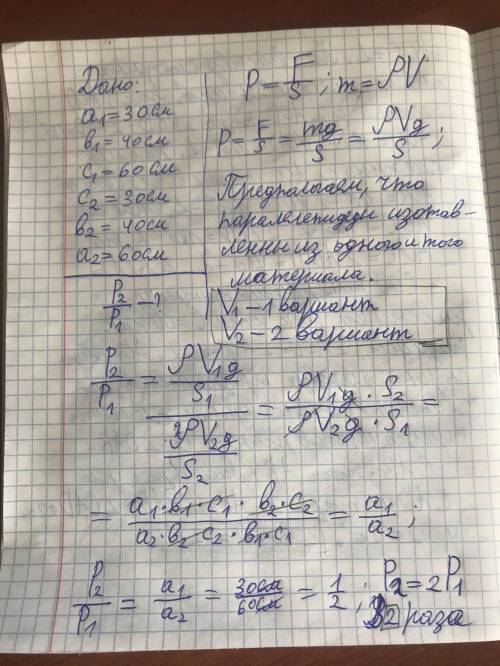 Дано:
a₁=30см
в₁=40см
c₁=60см
c₂=30см
в₂=40см
a₂=60см
P₂/P₁ - ?
P = F/S ; m = ρV
P = F/S = mg/S = ρVg/S ;
Предпологаем, что
паралелепидеды изотав-
ленны из одного и того
материала.
V₁ – 1 вариант
V₂ – 2 вариант
P₂/P₁ = (ρV₁g/S₁)/(ρV₂g/S₂) = (ρV₁g · S₂)/(ρV₂g · S₁) =
= (a₁·в₁·c₁ · в₂·c₂)/(a₂·в₂·c₂·в₁·c₁) = a₁/a₂ ;
P₂/P₁ = a₁/a₂ = 30см/60см = 1/2 ; P₂=2P₁
2 раза